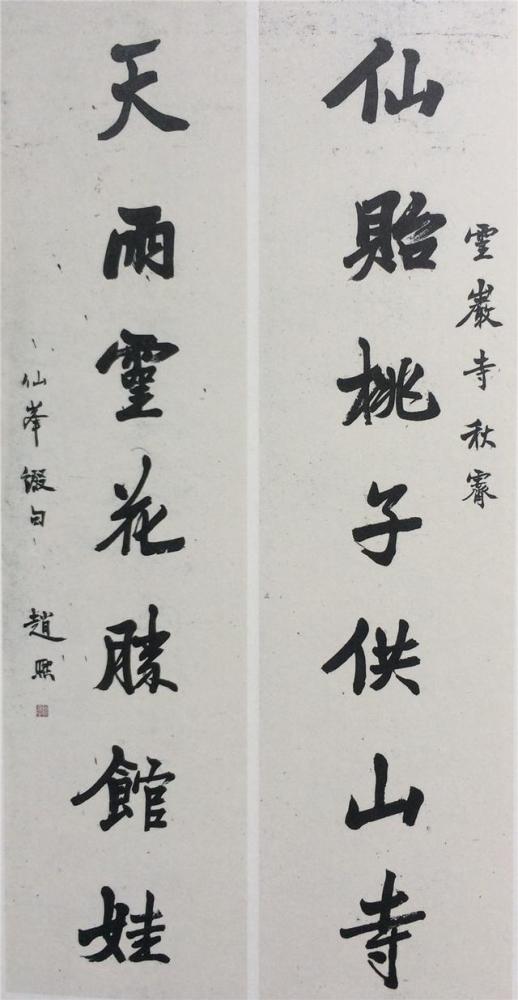 靈巖寺秋霽
仙貽桃子供山寺
天雨靈花勝館娃
仙峯綴句
趙熙